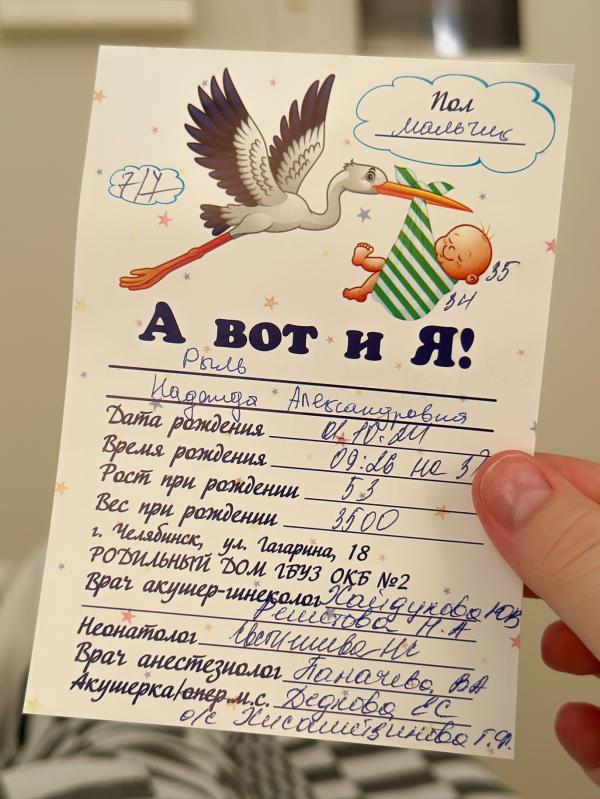 Пол
мальчик
7/7
35
34
А вот и Я!
Рыль
Надежда Александровна
Дата рождения 01.10.24
Время рождения 09:26 на 37
Рост при рождении 53
Вес при рождении 3500
г. Челябинск, ул. Гагарина, 18
РОДИЛЬНЫЙ ДОМ ГБУЗ ОКБ №2
Врач акушер-гинеколог Хайдукова ЮВ
Решетова Н.А
Неонатолог НС
Врач анестезиолог Паначева ВА
Акушерка/опер.м.с. Дедкова ЕС
о/с Г.Ф.